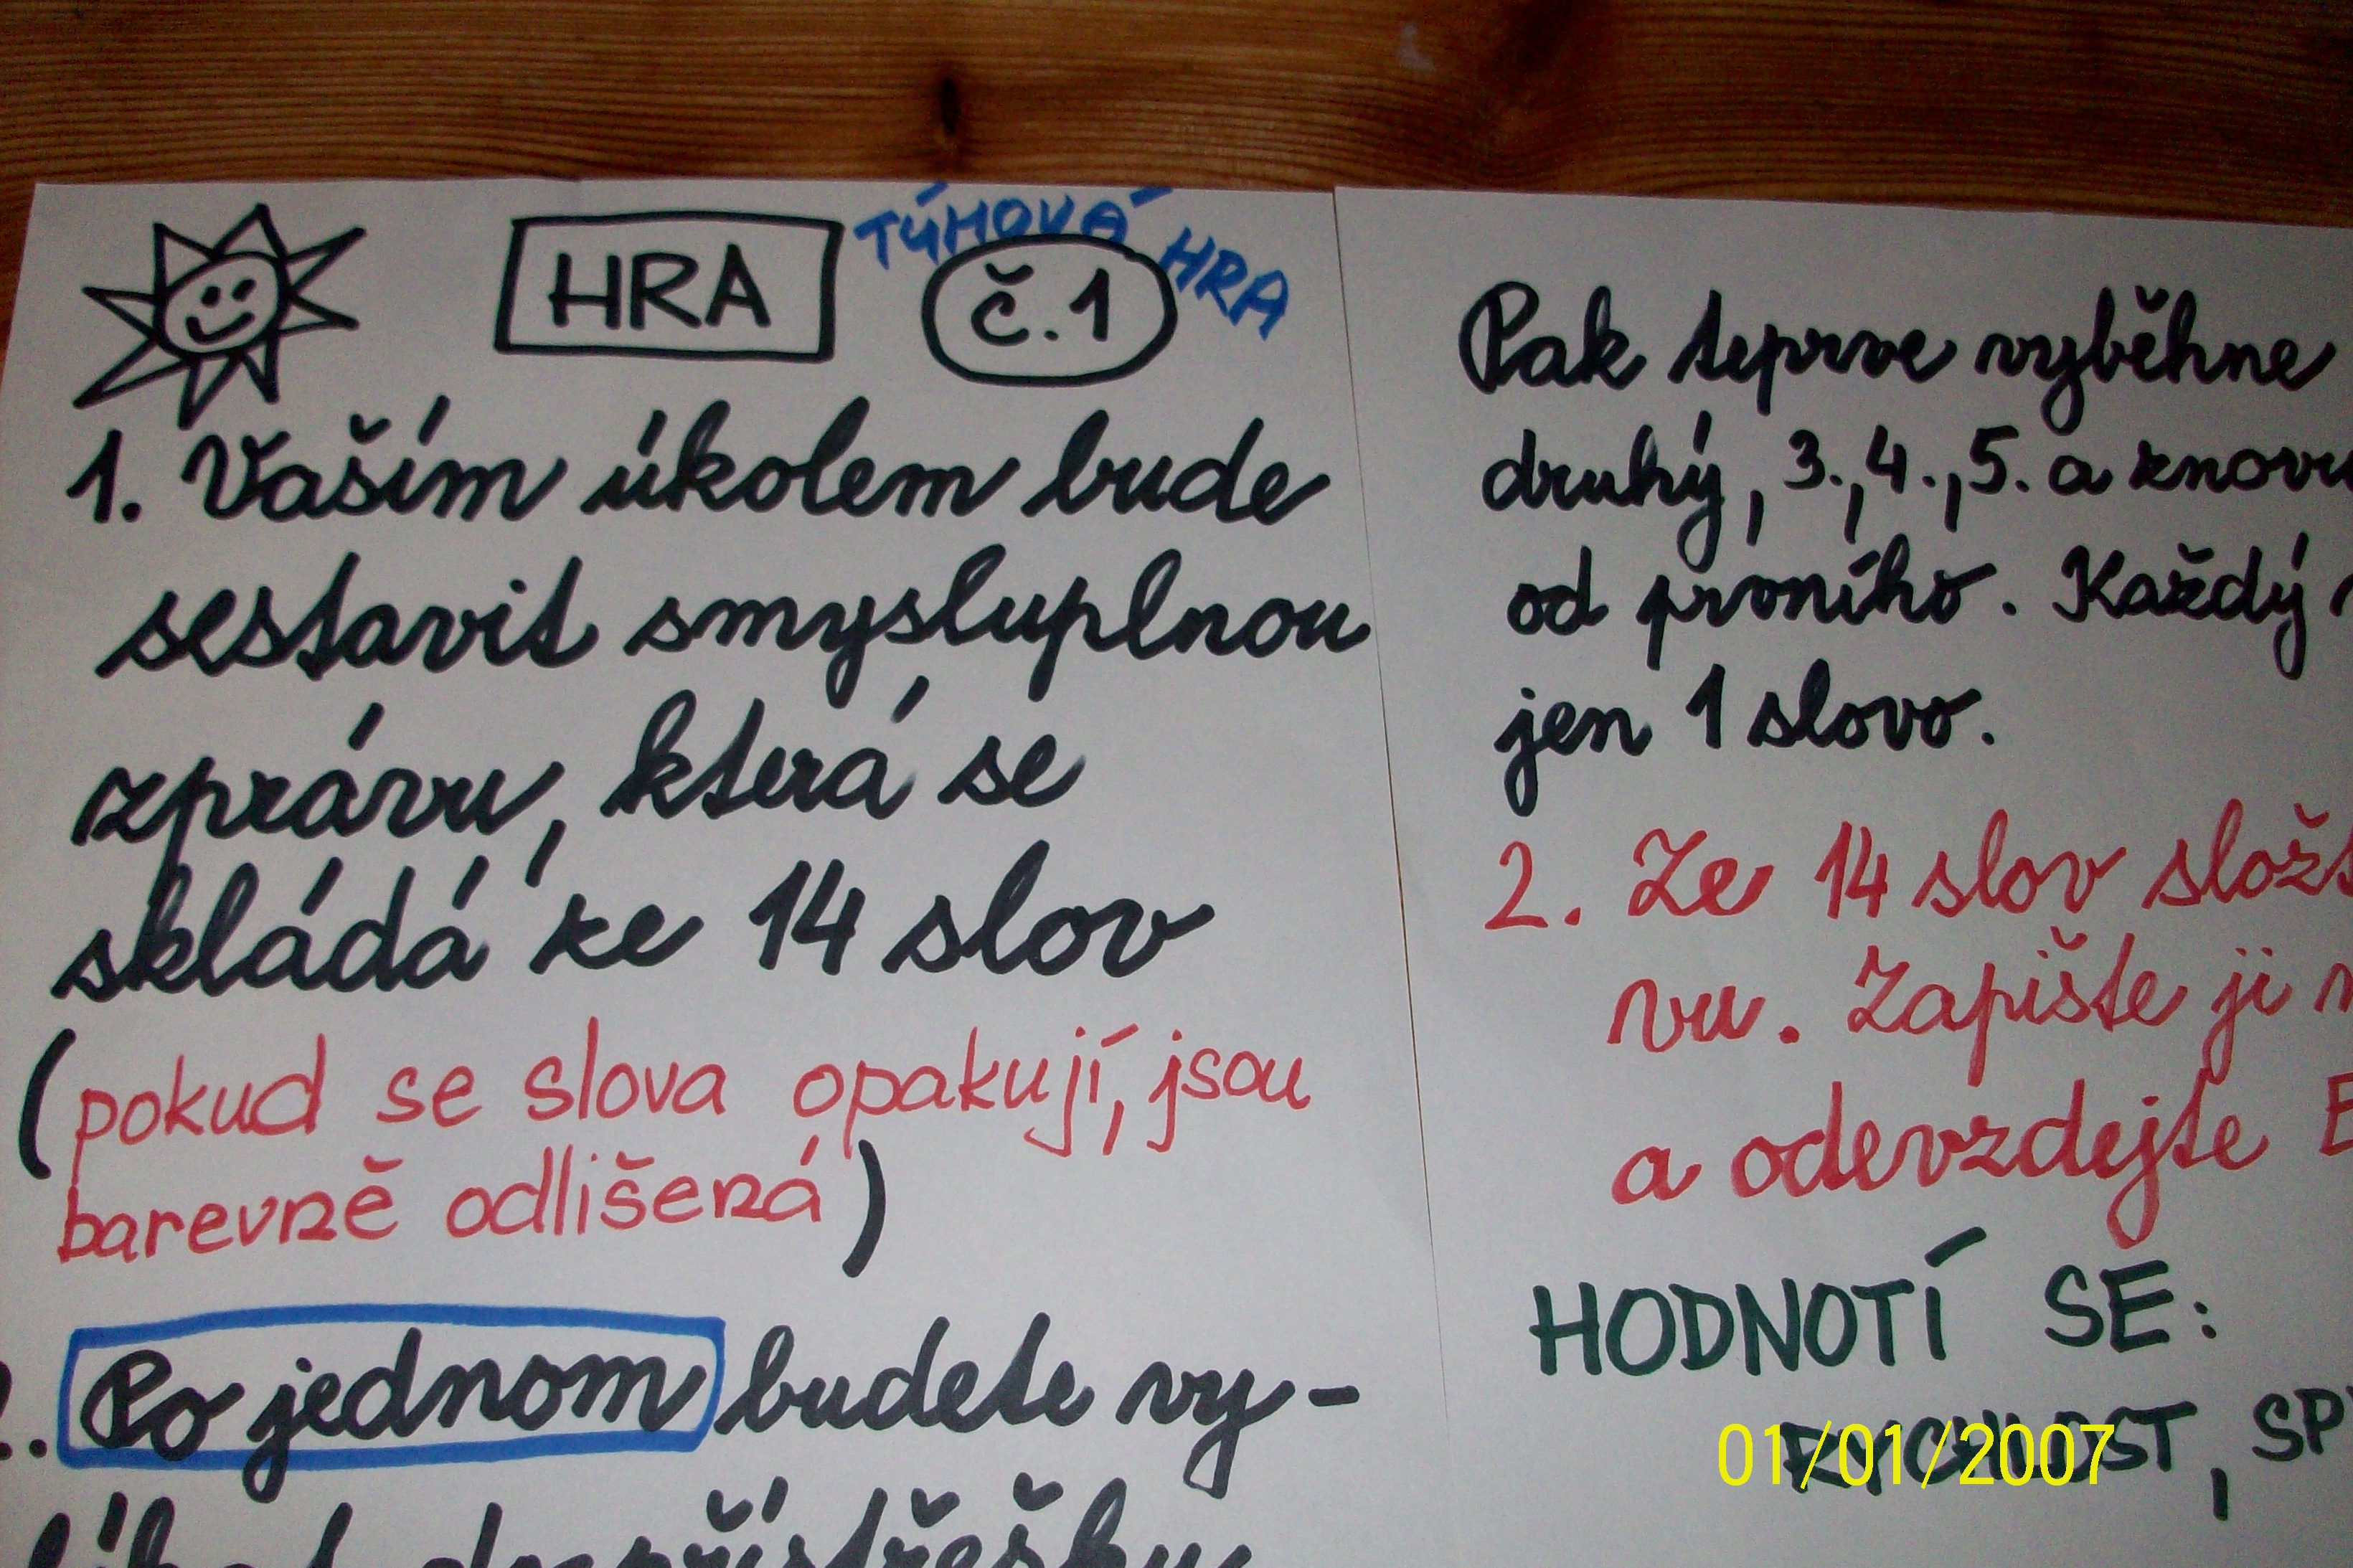 HRA
TÝMOVÁ HRA
č.1
1. Vaším úkolem bude
sestavit smysluplnou
zprávu, která se
skládá ze 14 slov
(pokud se slova opakují, jsou
barevně odlišená)
2. Po jednom budete vy-
Pak teprve vyběhne
druhý, 3., 4., 5. a znovu
od prvního. Každý
jen 1 slovo.
2. Ze 14 slov složt
vu. Zapište ji
a odevzdejte E
HODNOTÍ SE:
RYCHLOST, SP
01/01/2007